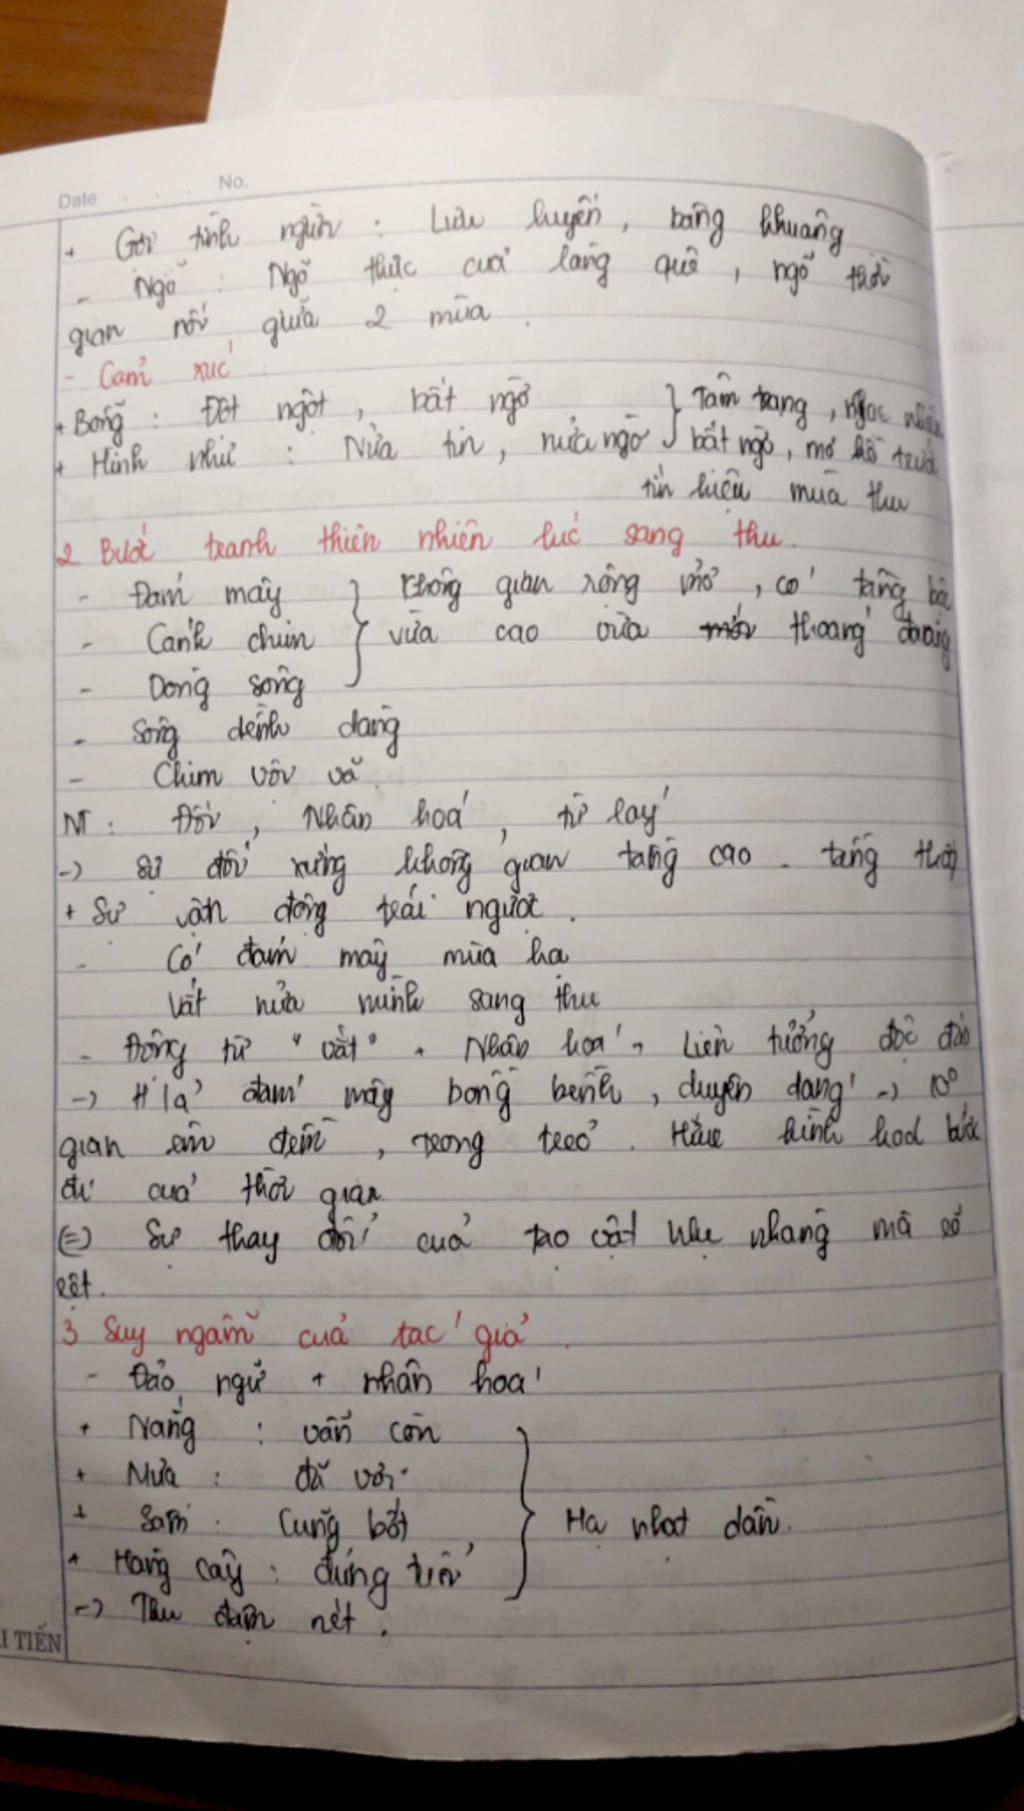 Date . . . No.
+ Gợi tình người : Lưu luyến, bâng khuâng
- Ngõ : Ngõ thực của làng quê, ngõ thời
gian nối giữa 2 mùa.
- Cảm xúc :
+ Bỗng : Đột ngột, bất ngờ } Tâm trạng, ngạc nhiên
+ Hình như : Nửa tin, nửa ngờ } bất ngờ, mơ hồ trước
tín hiệu mùa thu
2 Bức tranh thiên nhiên lúc sang thu.
- Đám mây } Không gian rộng mở, có tầng bậc
- Cánh chim } vừa cao vừa thoáng đãng
- Dòng sông }
- Sông dềnh dàng
- Chim vội vã
NT : Đối, Nhân hoá, từ láy
-> Sự đối xứng không gian tầng cao - tầng thấp
+ Sự vận động trái ngược.
- Có đám mây mùa hạ
Vắt nửa mình sang thu
- Động từ "vắt" + Nhân hoá -> Liên tưởng độc đáo
-> H/ả đám mây bồng bềnh, duyên dáng ->
gian êm đềm, trong trẻo. Hữu hình hoá bước
đi của thời gian
(=) Sự thay đổi của tạo vật nhẹ nhàng mà rõ
rệt.
3 Suy ngẫm của tác giả.
- Đảo ngữ + nhân hoá
+ Nắng : vẫn còn }
+ Mưa : đã vơi }
+ Sấm : Cũng bớt } Hạ nhạt dần.
+ Hàng cây : đứng tuổi }
-> Thu đậm nét.
I TIẾN